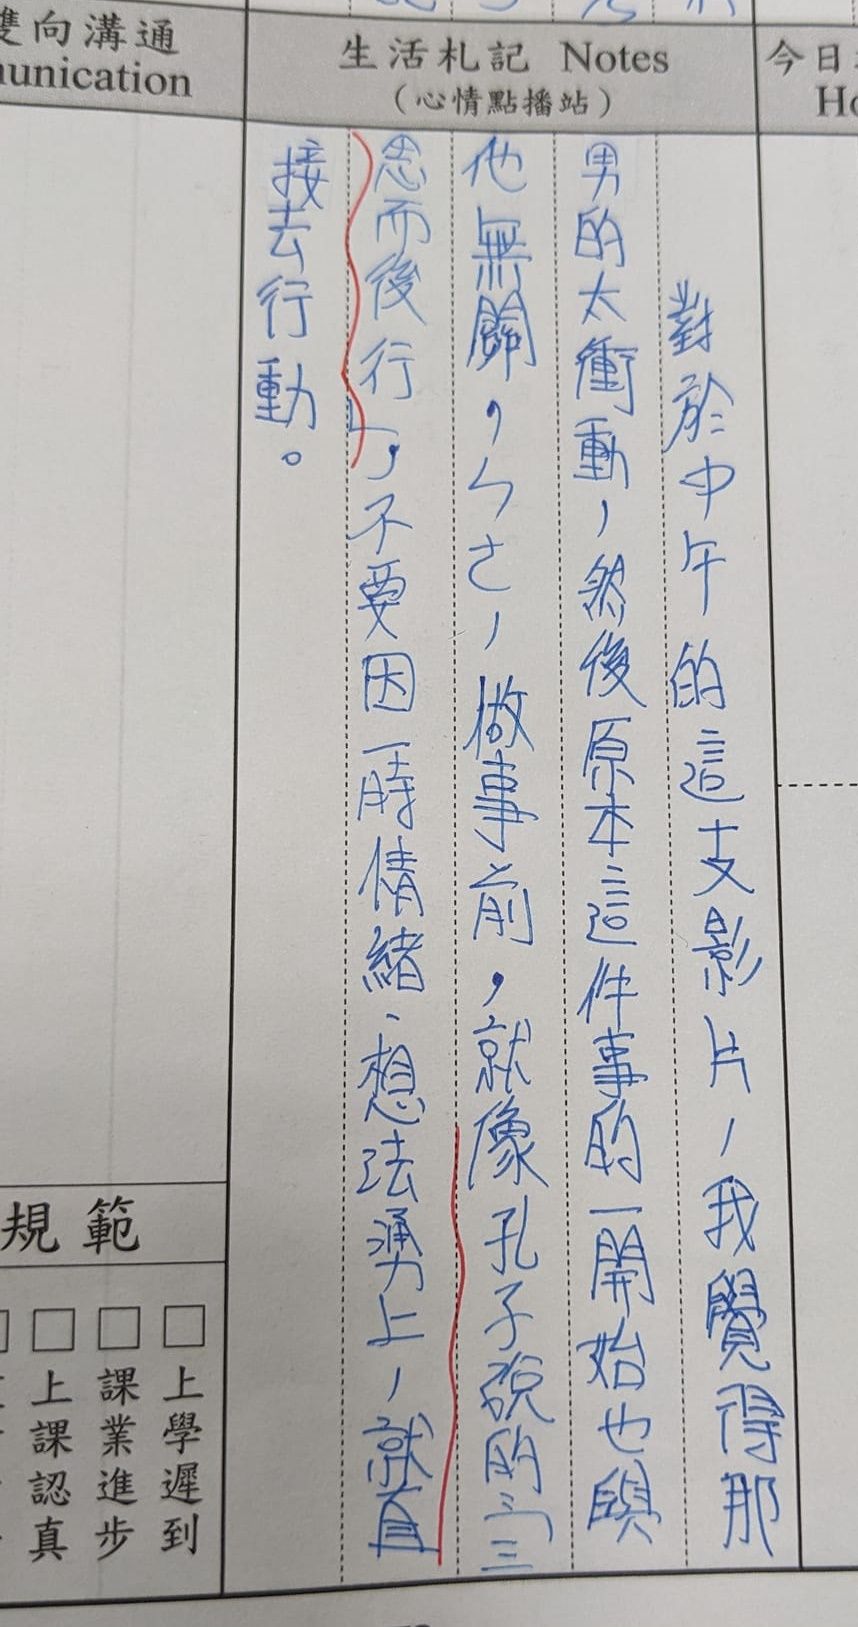 雙向溝通
unication
生活札記 Notes
(心情點播站)
今日
Ho
對於中午的這支影片,我覺得那
男的太衝動,然後原本這件事的一開始也與
他無關,ㄣさ,做事前,就像孔子說的:「三
思而後行」,不要因一時情緒、想法湧上,就直
接去行動。
規範
□上學遲到
□課業進步
□上課認真